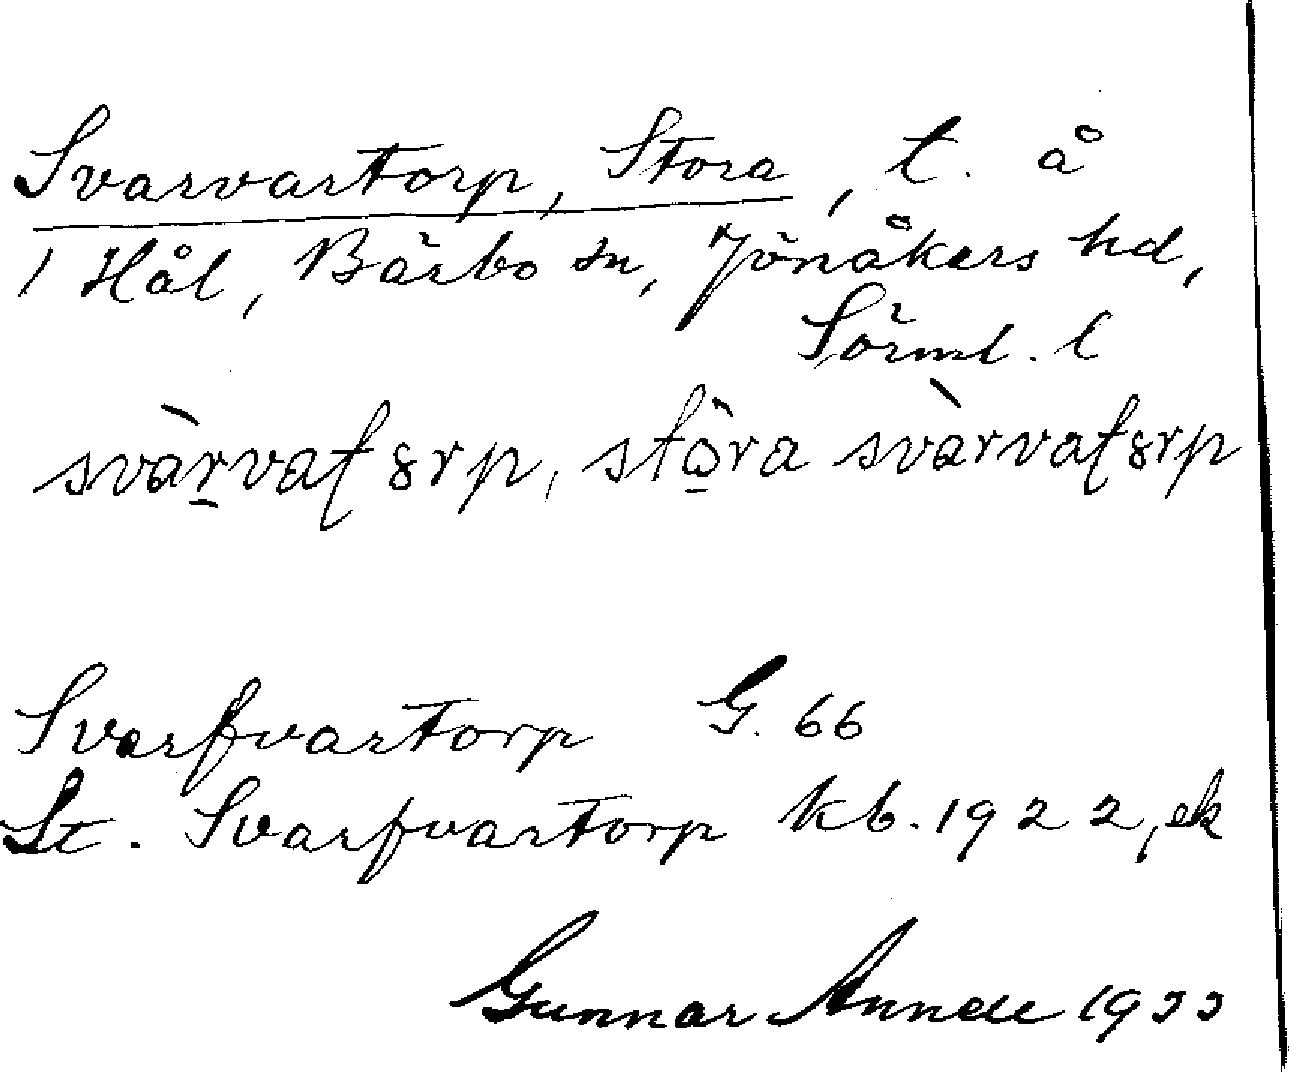 Svarvartorp, Stora, t. å
1 Hål, Bärbo sn, Jönåkers hd,
Sörml. l
svàrvatₒrp, stòra svàrvatₒrp
Svarfvartorp G. 66
St. Svarfvartorp kb. 1922, ek
Gunnar 1933